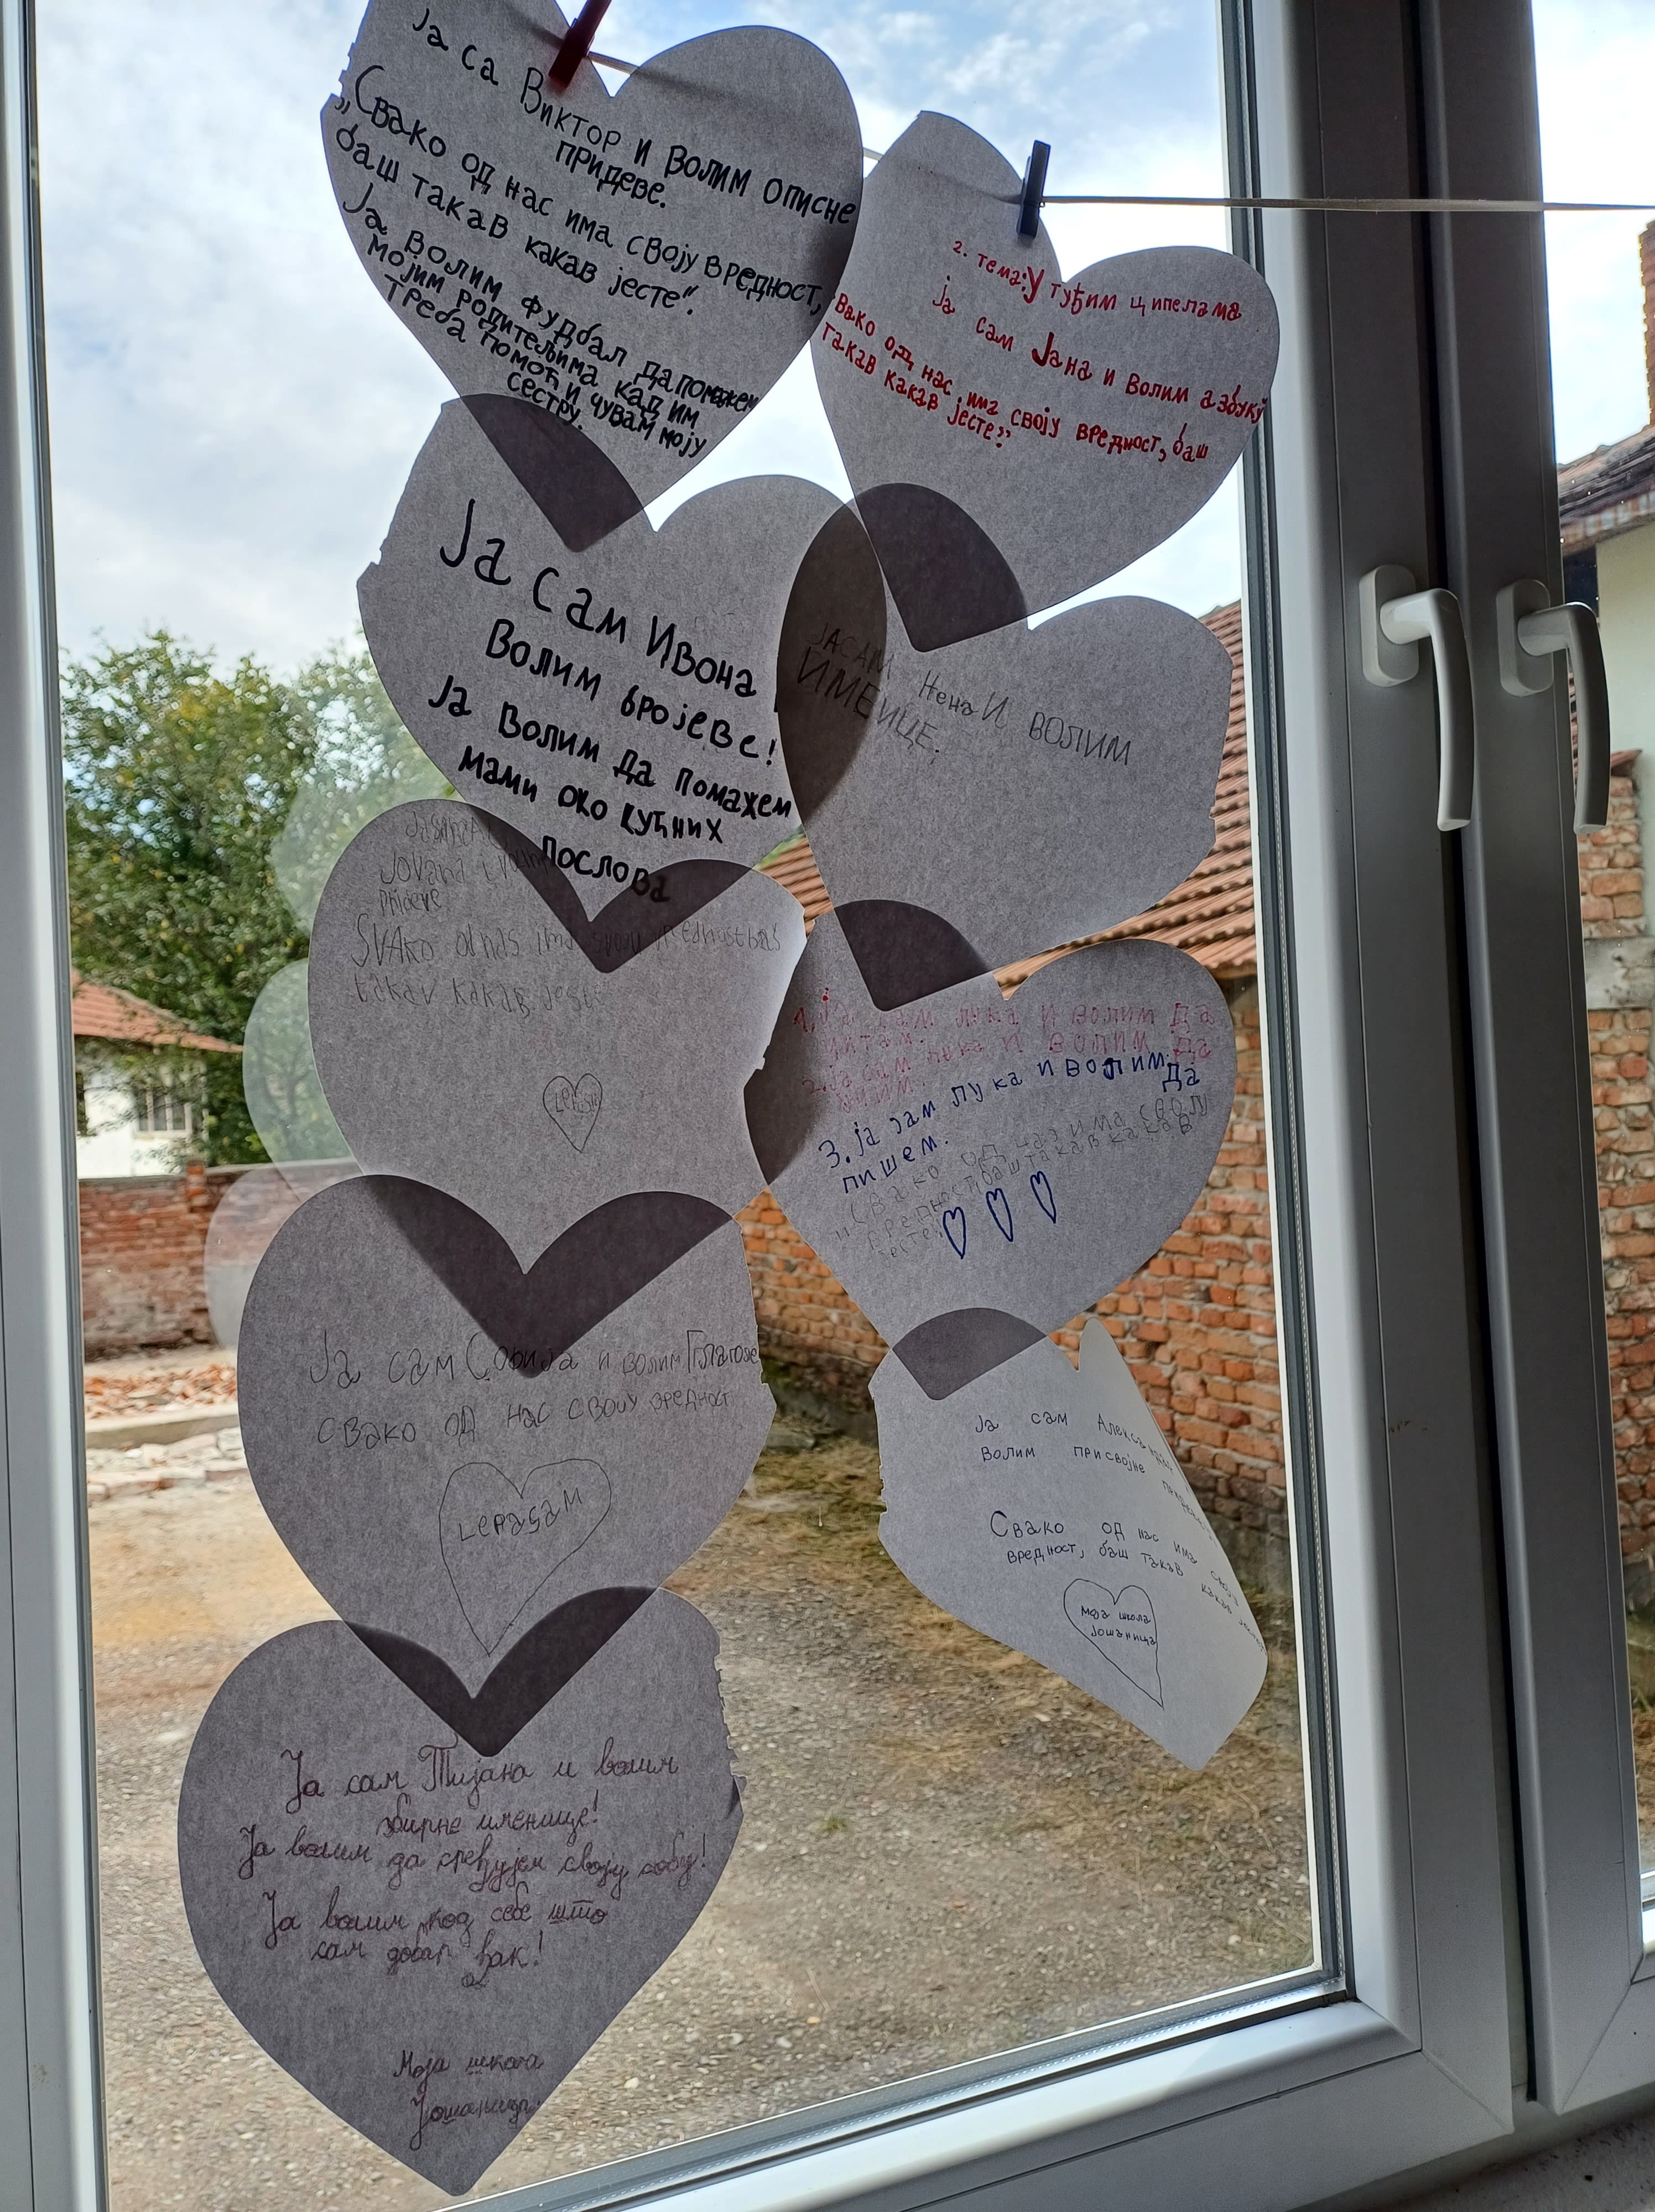 Ја са Виктор и волим описне
придеве.
„Свако од нас има своју вредност,
баш такав какав јесте".
Ја волим фудбал да помажем
мојим родитељима кад им
треба помоћ и чувам моју
сестру.
2. тема: У туђим ципелама
Ја сам Јана и волим азбуку
Вако од нас има своју вредност, баш
такав какав јесте?"
Ја сам Ивона
Волим бројеве!
Ја волим да помажем
мами око кућних
послова
ЈАСАМ Нена И ВОЛИМ
ИМЕНИЦЕ.
Jovana i
Prideve
SVAko od nas ima svoju vrednost baš
takav kakav jeste
1. Ја сам лука и волим да
читам.
2. Ја сам лука и волим да
3. Ја сам лука и волим да
пишем.
"Свако од нас има своју
вредност, баш такав какав
јесте"
Ја сам Софија и волим Глаголе
свако од нас своју вредност
Lepasam
Ја сам
Волим присвојне
Свако од нас има своју
вредност, баш такав какав
Моја школа
Јошаница
Ја сам Тијана и волим
збирне именице!
Ја волим да сређујем своју собу!
Ја волим код себе што
сам добар ђак!
Моја школа
Јошаница.